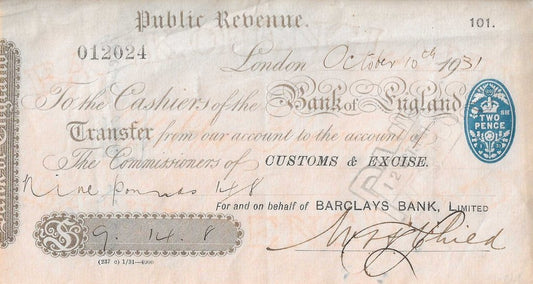 Public Revenue.
101.
012024
London October 10th 1931
To the Cashiers of the Bank of England
TWO PENCE
Transfer from our account to the account of
The Commissioners of CUSTOMS & EXCISE.
Nine pounds 14/8
For and on behalf of BARCLAYS BANK, LIMITED
£ 9. 14. 8
Child
(237 c) 1/31—4000